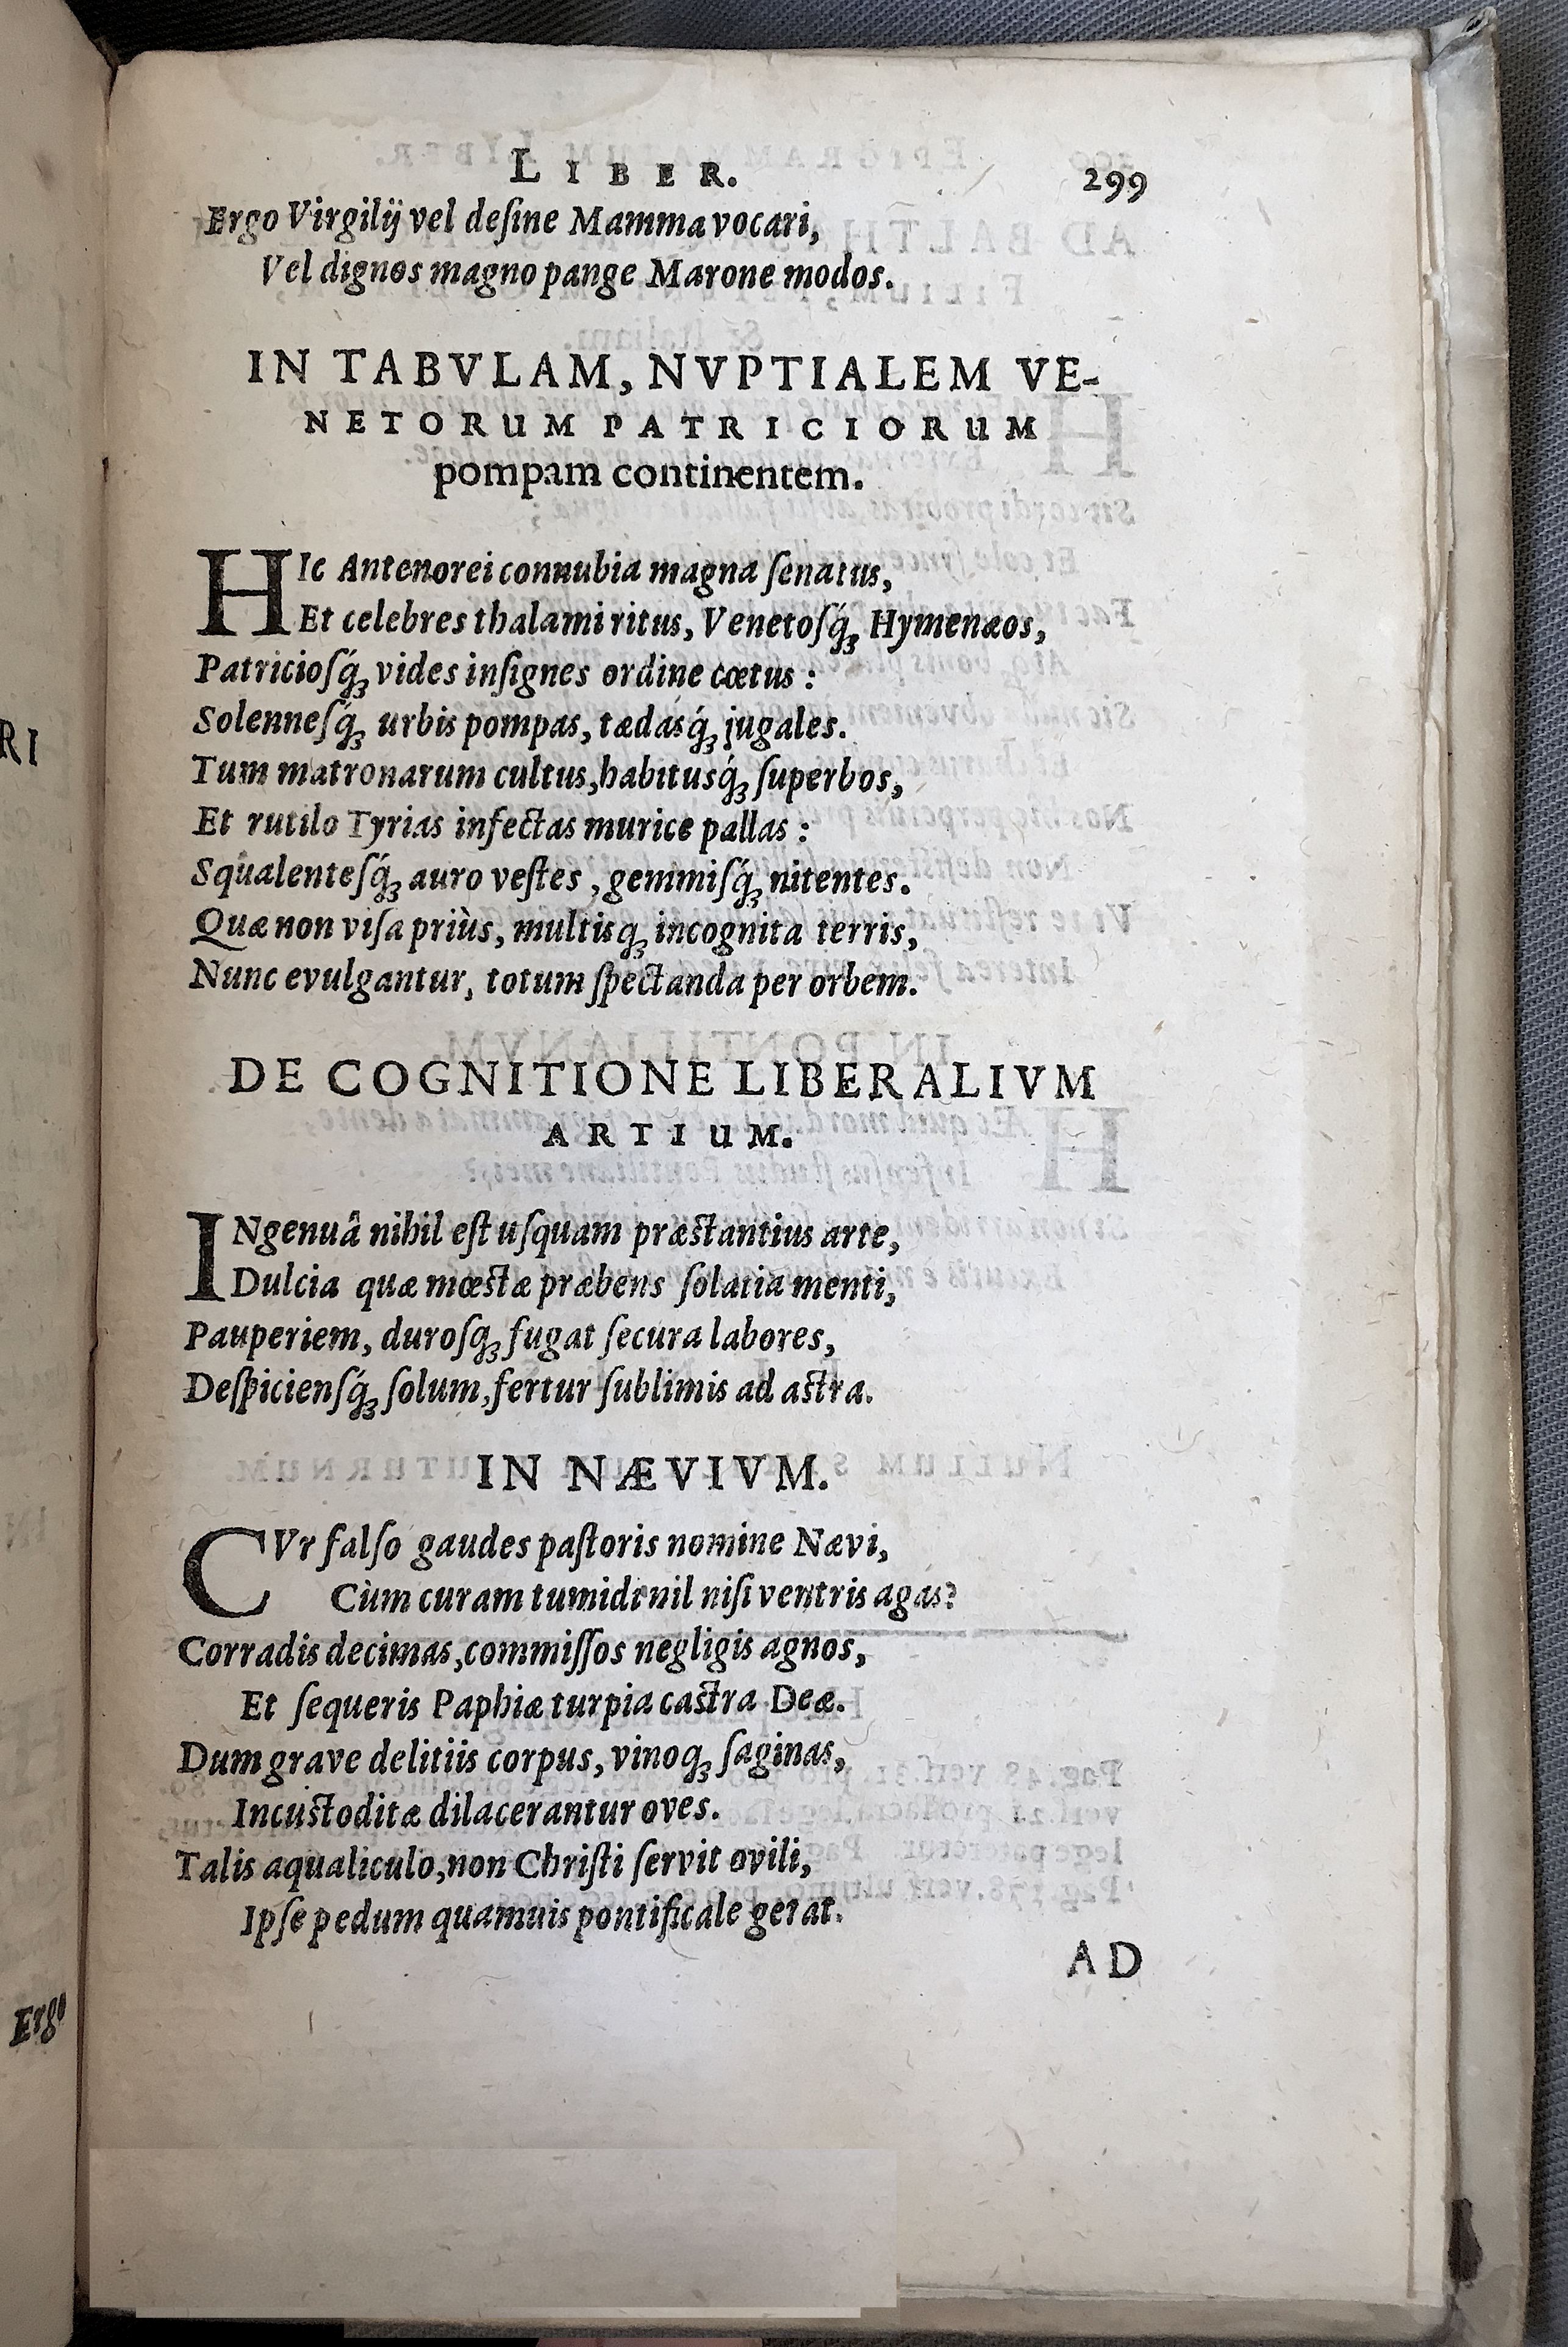 LIBER. 299
Ergo Virgilij vel deſine Mamma vocari,
Vel dignos magno pange Marone modos.
IN TABVLAM, NVPTIALEM VE-
NETORUM PATRICIORUM
pompam continentem.
HIc Antenorei connubia magna ſenatus,
Et celebres thalami ritus, Venetoſq́ꝫ Hymenæos,
Patricioſq́ꝫ vides inſignes ordine cœtus :
Solenneſq́ꝫ urbis pompas, tædasq́ꝫ jugales.
Tum matronarum cultus, habitusq́ꝫ ſuperbos,
Et rutilo Tyrias infectas murice pallas :
Squalenteſq́ꝫ auro veſtes, gemmiſq́ꝫ nitentes.
Quæ non viſa priùs, multisqꝫ incognita terris,
Nunc evulgantur, totum ſpectanda per orbem.
DE COGNITIONE LIBERALIVM
ARTIUM.
INgenuâ nihil eſt uſquam præſtantius arte,
Dulcia quæ mœſtæ præbens ſolatia menti,
Pauperiem, duroſqꝫ fugat ſecura labores,
Deſpicienſq́ꝫ ſolum, fertur ſublimis ad aſtra.
IN NÆVIVM.
CVr falſo gaudes paſtoris nomine Nævi,
Cùm curam tumidi nil niſi ventris agas?
Corradis decimas, commiſſos negligis agnos,
Et ſequeris Paphiæ turpia caſtra Deæ.
Dum grave delitiis corpus, vinoqꝫ ſaginas,
Incuſtoditæ dilacerantur oves.
Talis aqualiculo, non Chriſti ſervit ovili,
Ipſe pedum quamuis pontificale gerat.
AD
RI
Ergo